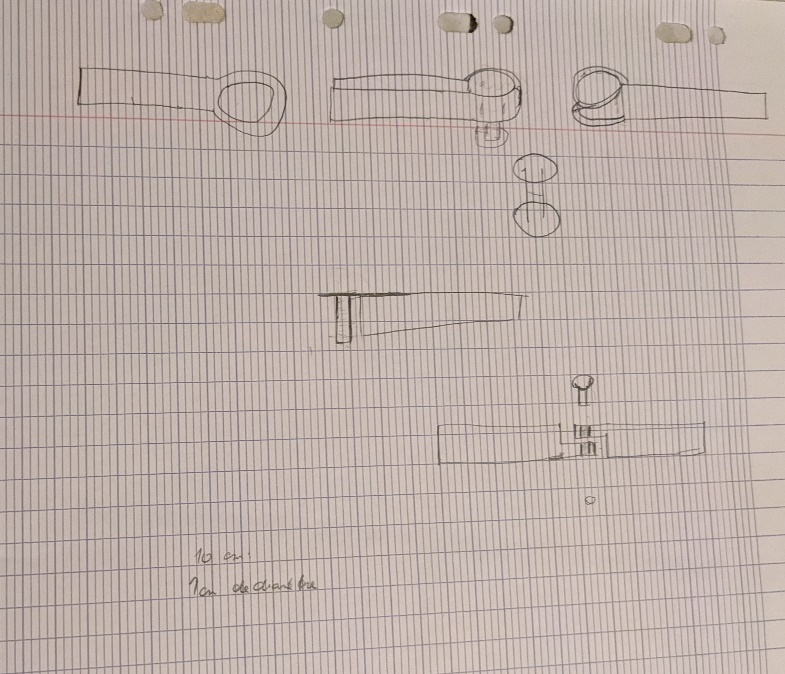 10 cm.
1cm de diamètre